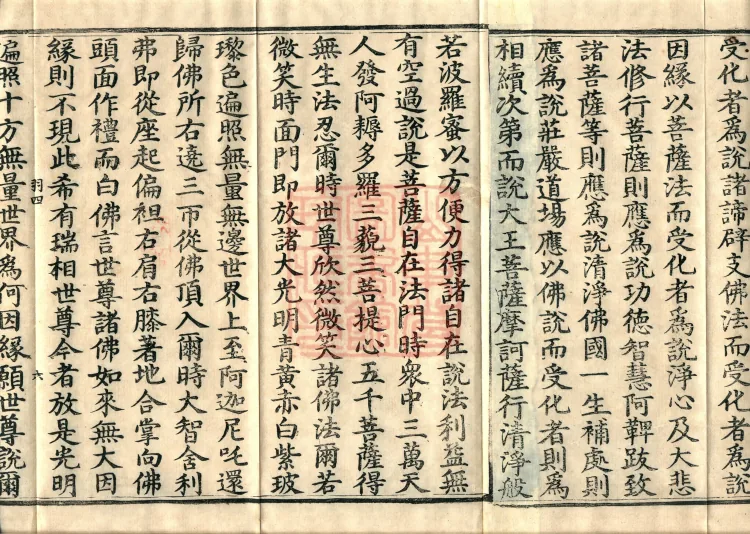 受化者爲説諸諦辟支佛法而受化者爲説
因緣以菩薩法而受化者爲説淨心及大悲
法修行菩薩則應爲説功德智慧阿鞞跋致
諸菩薩等則應爲説清淨佛國一生補處則
應爲説莊嚴道場應以佛説而受化者則爲
相續次第而説大王菩薩摩訶薩行清淨般
若波羅蜜以方便力得諸自在説法利益無
有空過説是菩薩自在法門時衆中三萬天
人發阿耨多羅三藐三菩提心五千菩薩得
無生法忍爾時世尊欣然微笑諸佛法爾若
微笑時面門即放諸大光明青黃赤白紫玻
瓈色遍照無量無邊世界上至阿迦尼吒還
歸佛所右遶三帀從佛頂入爾時大智舍利
弗即從座起偏袒右肩右膝著地合掌向佛
頭面作禮而白佛言世尊諸佛如來無大因
緣則不現此希有瑞相世尊今者放是光明
羽四 六
遍照十方無量世界爲何因緣願世尊説爾